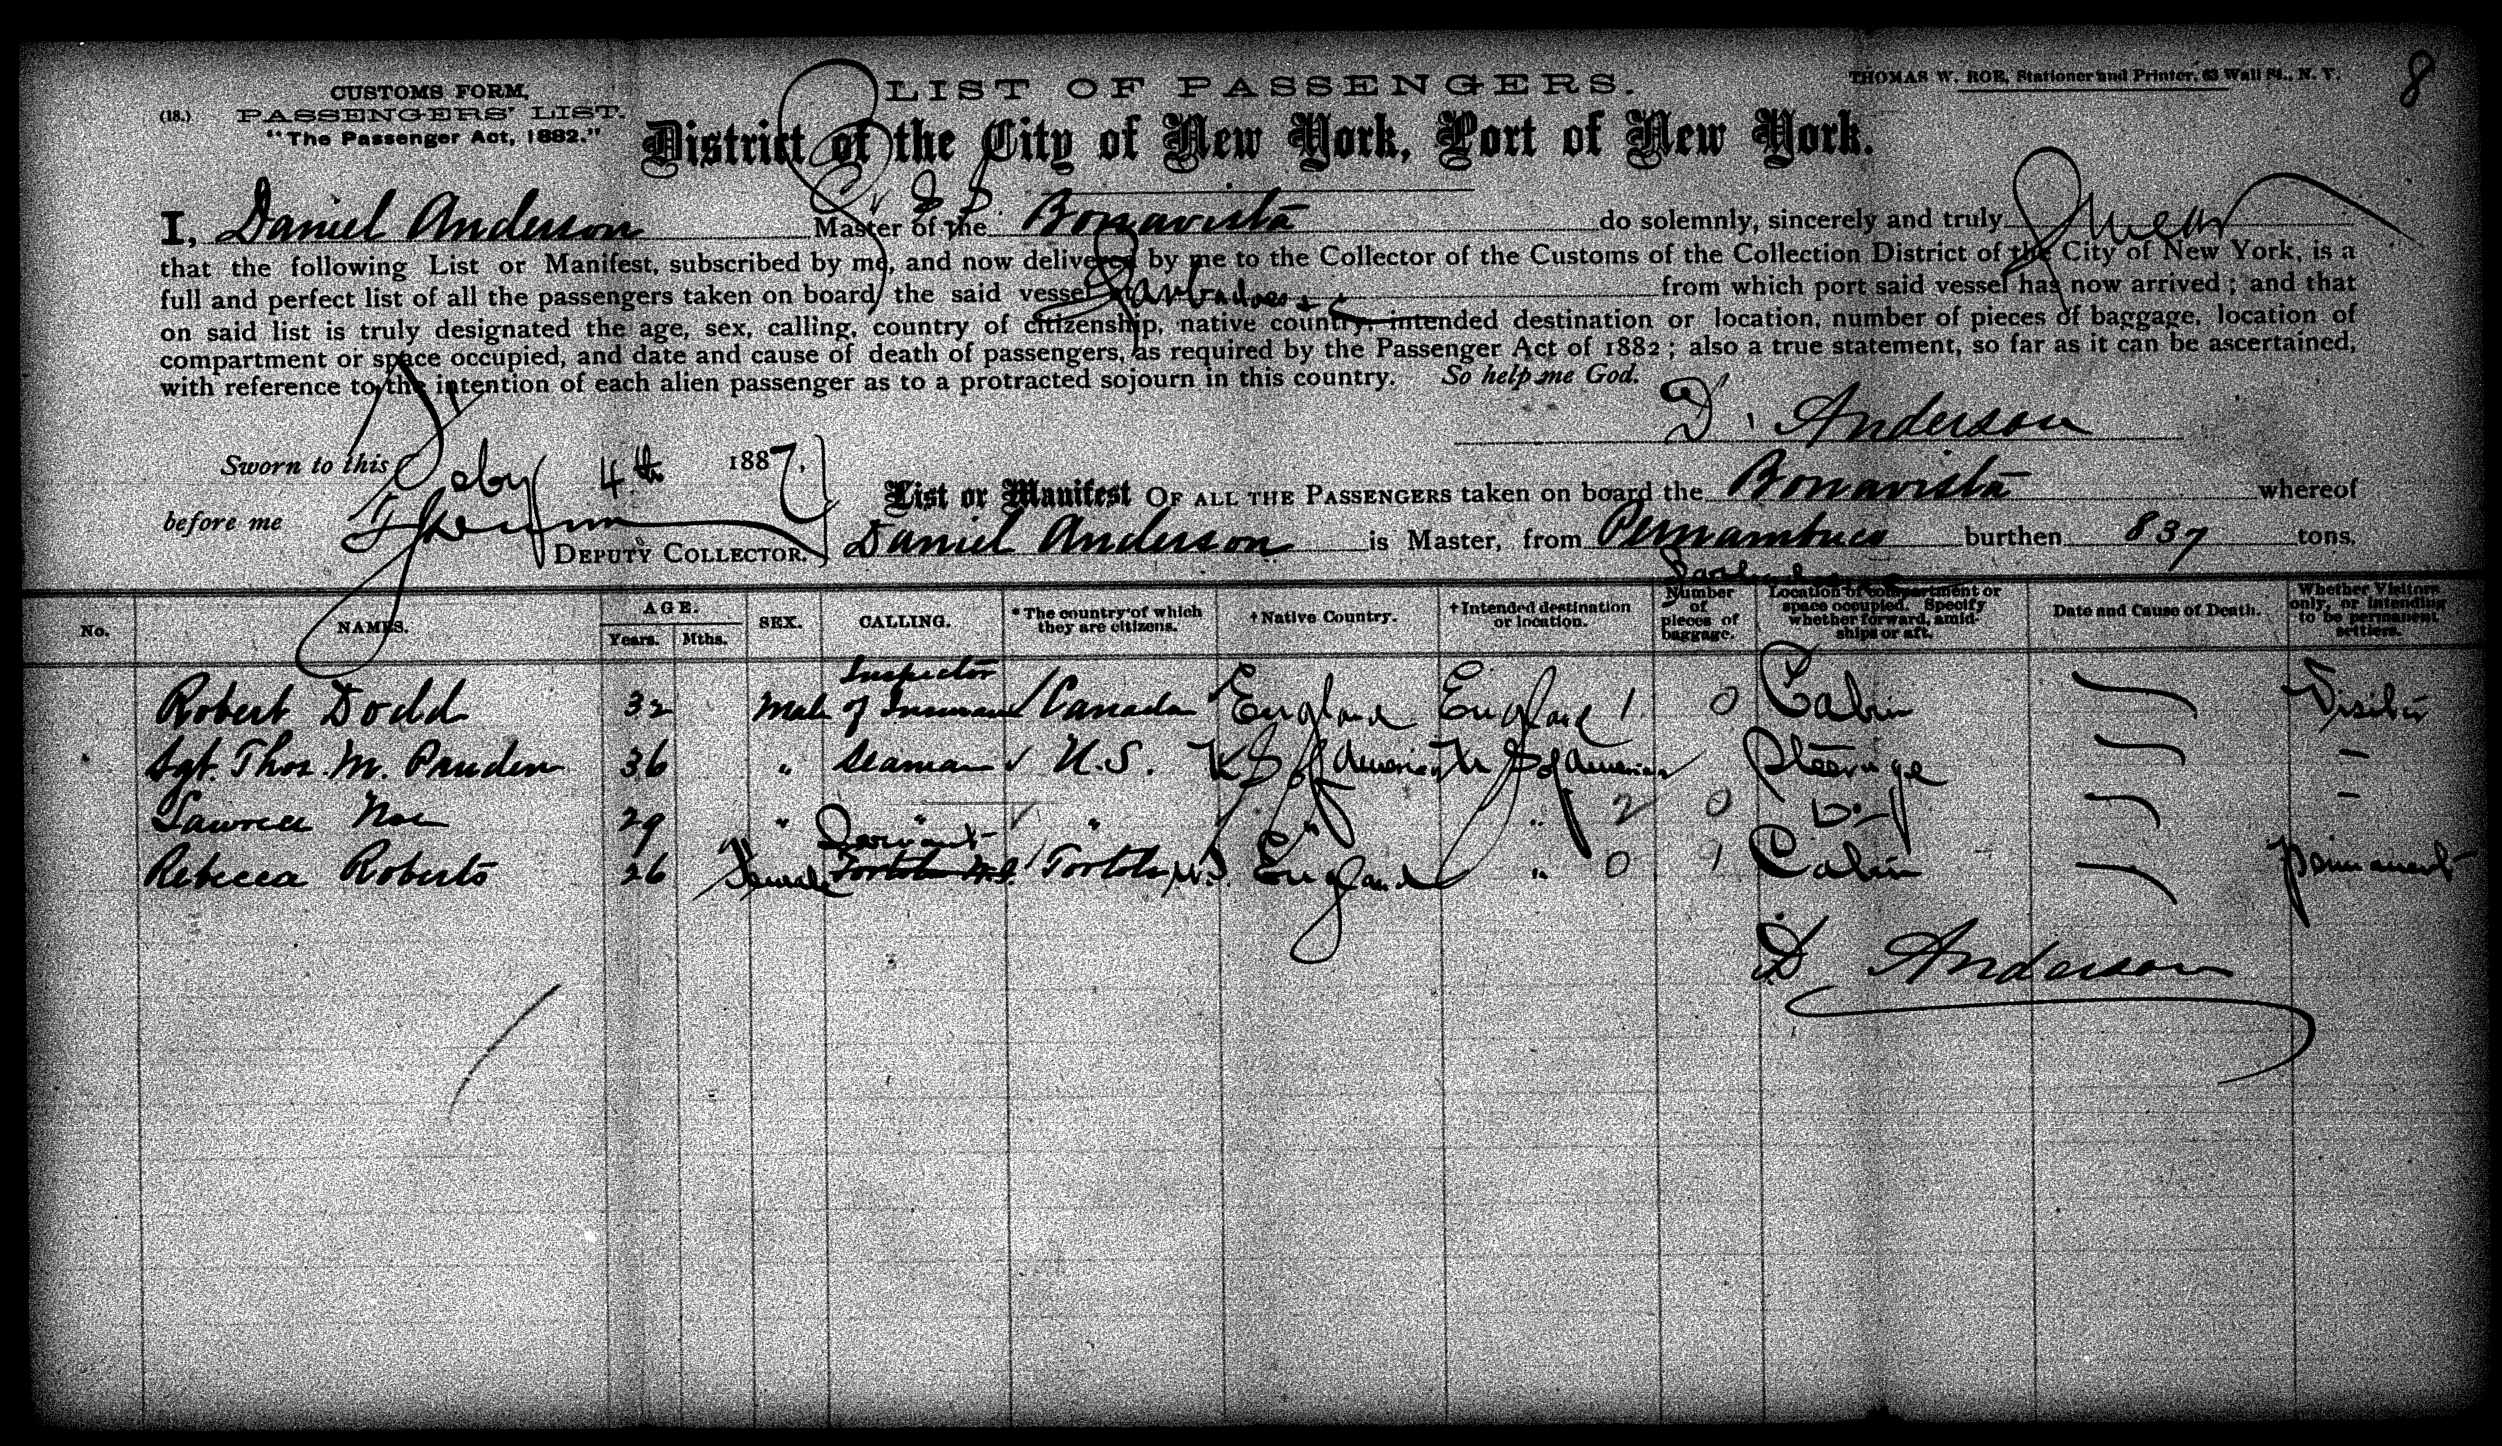 8
THOMAS W. ROE, Stationer and Printer, 63 Wall St., N. Y.
CUSTOMS FORM,
(18.) PASSENGERS' LIST.
"The Passenger Act, 1882."
LIST OF PASSENGERS.
District of the City of New York, Port of New York.
I, Daniel Anderson Master of the S.S. Bonavista do solemnly, sincerely and truly Swear
that the following List or Manifest, subscribed by me, and now delivered by me to the Collector of the Customs of the Collection District of the City of New York, is a
full and perfect list of all the passengers taken on board the said vessel at Barbadoes from which port said vessel has now arrived; and that
on said list is truly designated the age, sex, calling, country of citizenship, native country, intended destination or location, number of pieces of baggage, location of
compartment or space occupied, and date and cause of death of passengers, as required by the Passenger Act of 1882; also a true statement, so far as it can be ascertained,
with reference to the intention of each alien passenger as to a protracted sojourn in this country. So help me God.
D. Anderson
Sworn to this Feby 4th 1887,
before me
DEPUTY COLLECTOR.
List or Manifest OF ALL THE PASSENGERS taken on board the Bonavista whereof
Daniel Anderson is Master, from Pernambuco burthen 837 tons.
Barbadoes
No. NAMES. AGE. Years. Mths. SEX. CALLING. *The country of which they are citizens. †Native Country. †Intended destination or location. Number of pieces of baggage. Location of compartment or space occupied. Specify whether forward, amidships or aft. Date and Cause of Death. Whether Visitors only, or intending to be permanent settlers.
Robert Dodd 32 Male Inspector of Insurance Canada England England 1 0 Cabin Visitor
Sgt. Thos. M. Pruden 36 " Seaman U.S. U S of America U S of America Steerage -
Lawrence 29 " " " " " 2 0 Do -
Rebecca Roberts 26 Female Servant Tortola W.I. Tortola W.I. England " 0 1 Cabin Permanent
D Anderson